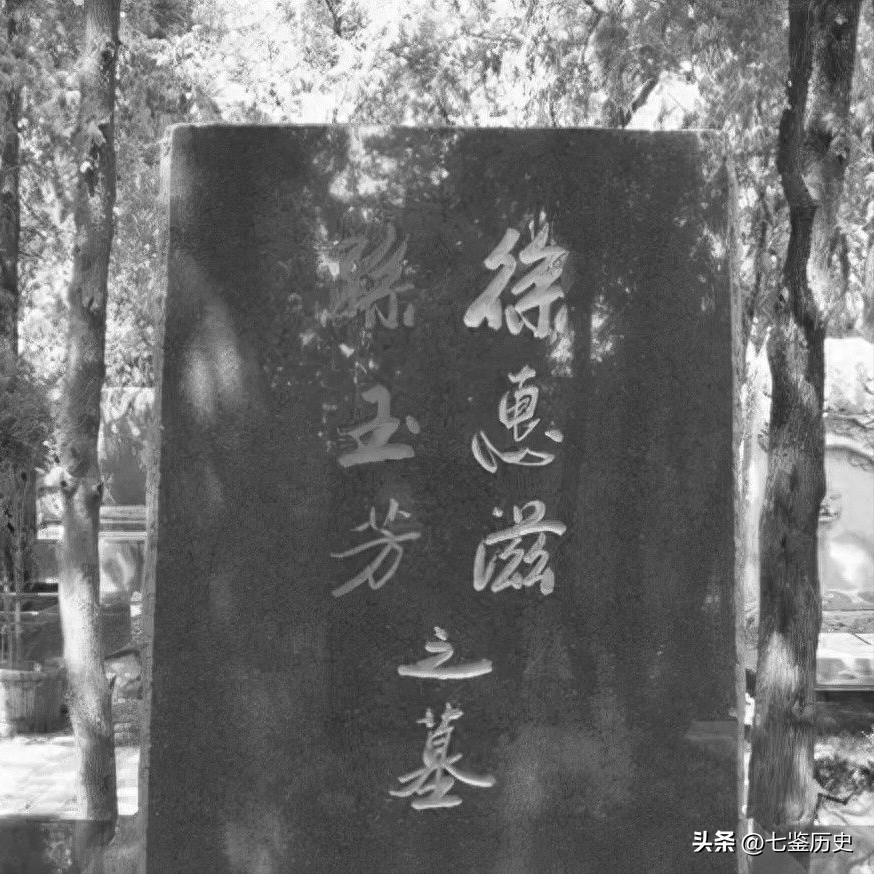 徐惠滋
孫玉芳
之墓
头条 @七鉴历史